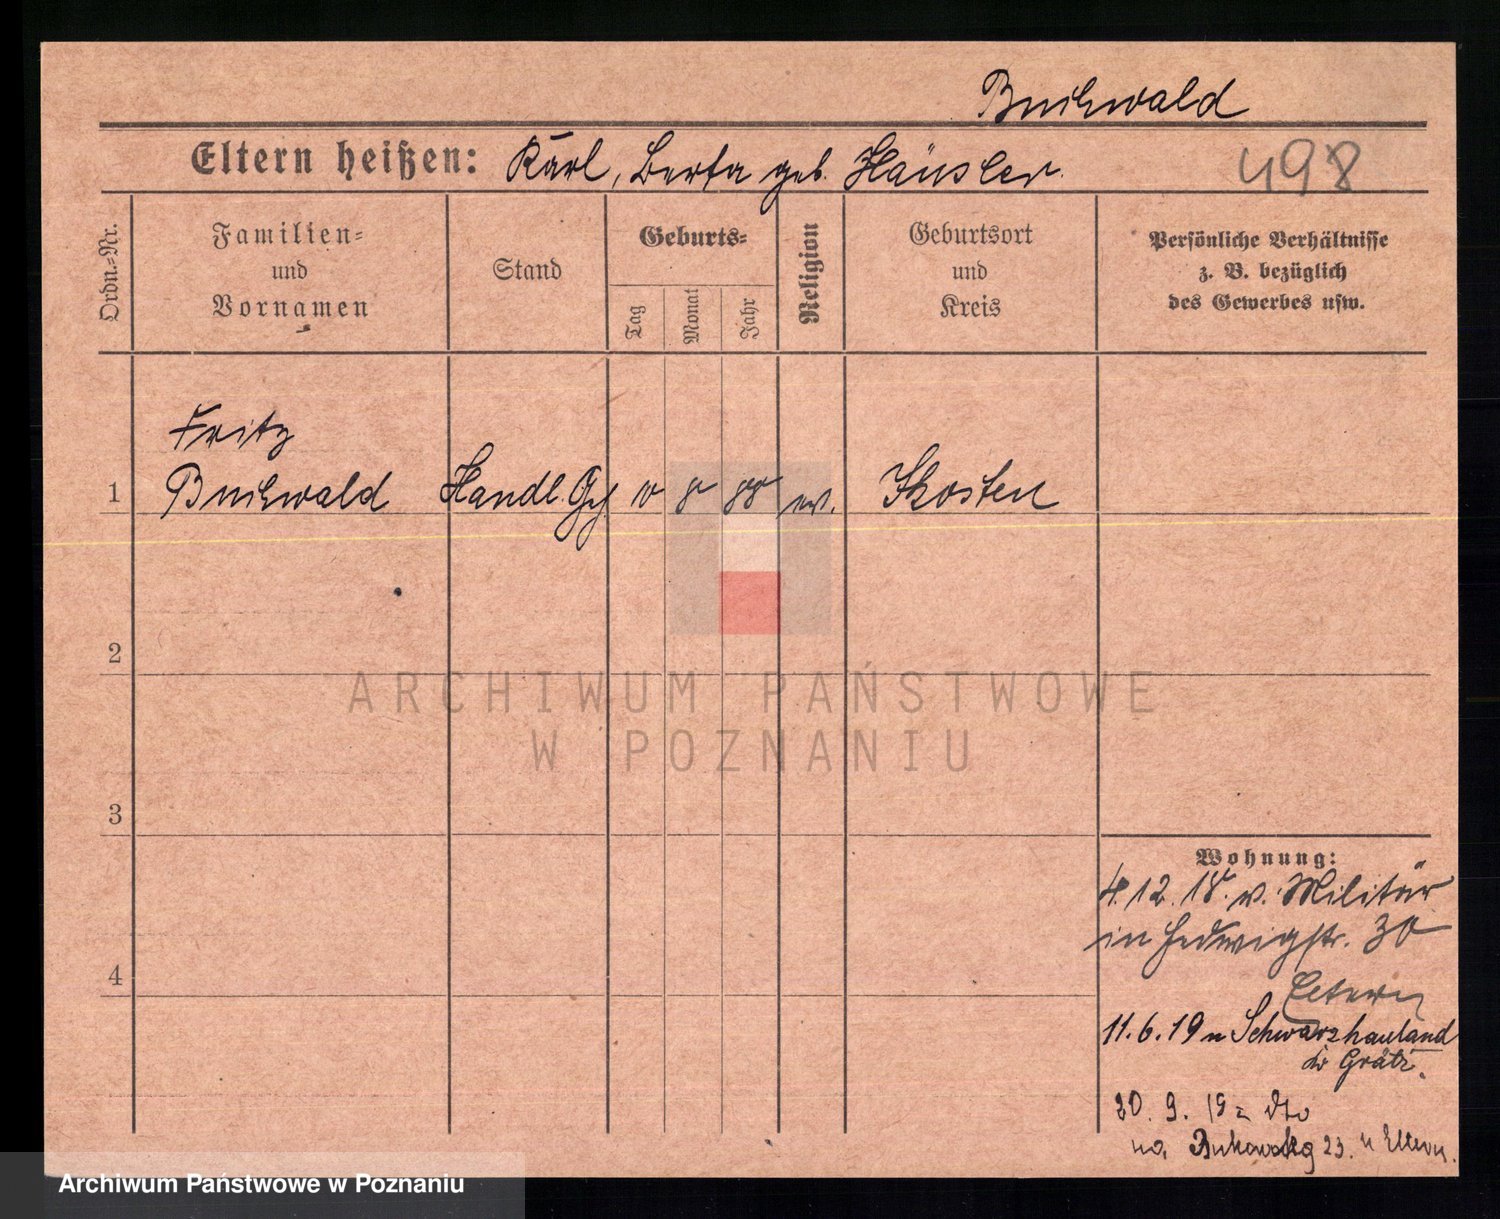 Buchwald
Eltern heißen: Karl, Berta geb. Häusler.
498
Ordn.-Nr.
Familien-
und
Vornamen
Stand
Geburts-
Tag
Monat
Jahr
Religion
Geburtsort
und
Kreis
Persönliche Verhältnisse
z. B. bezüglich
des Gewerbes usw.
Fritz
1 Buchwald Handl. Geh. 10 8 88 ev. Kosten
2
3
4
ARCHIWUM PAŃSTWOWE
W POZNANIU
Wohnung:
4.12.18. v. Militär
in Hedwigstr. 30
Eltern
11.6.19 n Schwarzhauland
Kr Grätz.
20. 9. 19 dto
Bukowska 23. Eltern.
Archiwum Państwowe w Poznaniu